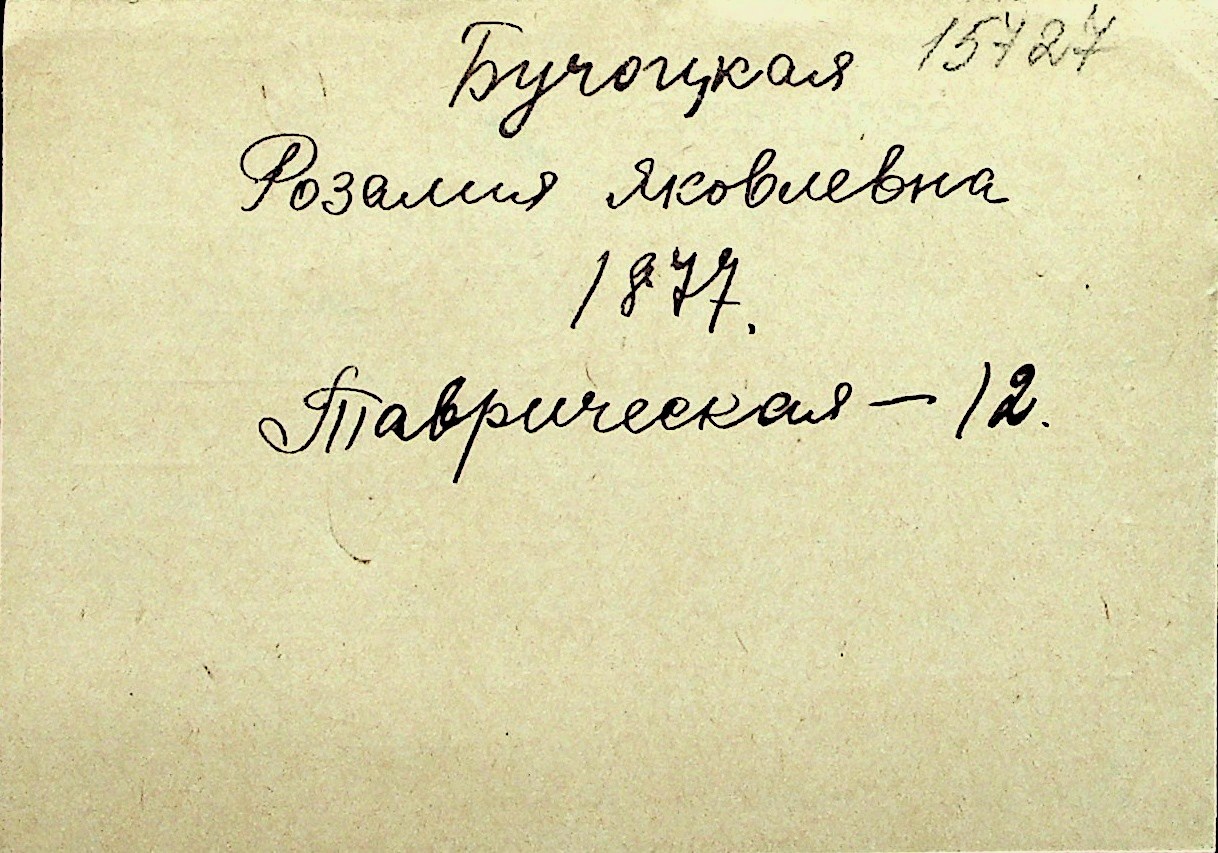 Бучоцкая 15727
Розалия Яковлевна
1877.
Таврическая — 12.